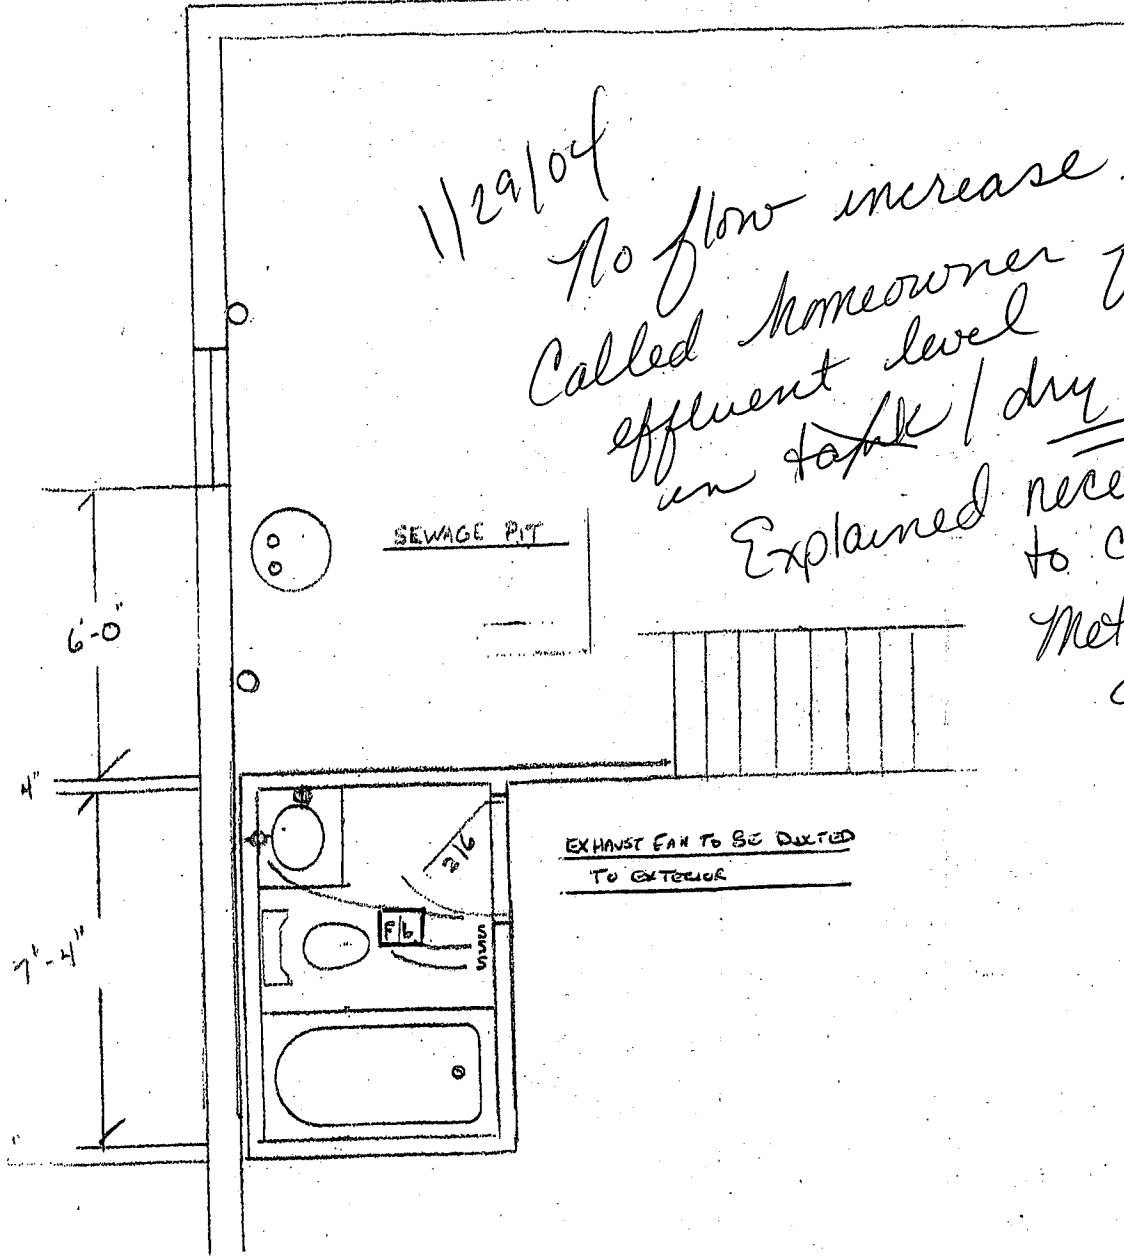 1/29/04
No flow increase.
Called homeowner
effluent level
in tank / dry
Explained
to
SEWAGE PIT
6'-0"
4"
7'-4"
2/6
EXHAUST FAN TO BE DUCTED
TO EXTERIOR
F/L
S
S
S